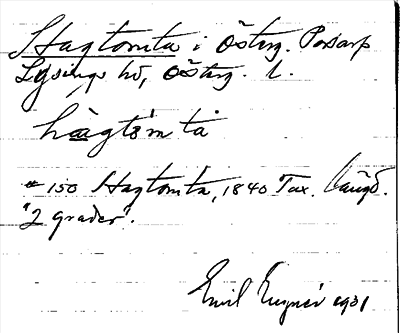 Hagtomta i Österg. Pardarp
Lysings hd, Österg. l.
hàgtom ta
150 Hagtomta, 1840 Tax. Längd.
"2 grader".
Emil 1931